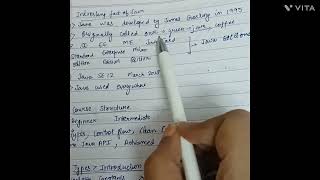 Interesting fact of Java
> Java was developed by James Gosling in 1995
> Originally called oak → green → java coffee
SE EE ME
Standard Enterprise Micro
edition Edition Edition
Java Editions
> Java SE 12 March 2018
> Java used everywhere
Course Structure
Beginner Intermediate
Types, Control flow, Clean
Java API, Advanced
Types > Introduction
VITA